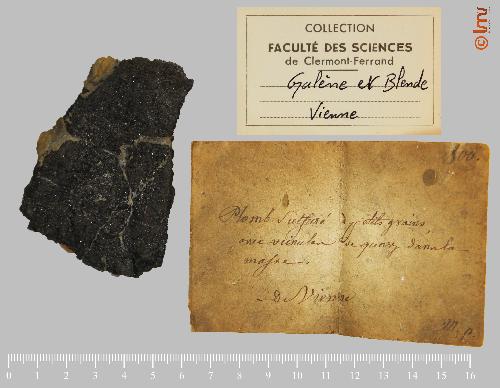 COLLECTION
FACULTÉ DES SCIENCES
de Clermont-Ferrand
Galène et Blende
Vienne
Plomb Sulfuré à petits grains,
avec veinules de quarz dans la
masse.
De Vienne
0 1 2 3 4 5 6 7 8 9 10 11 12 13 14 15 16